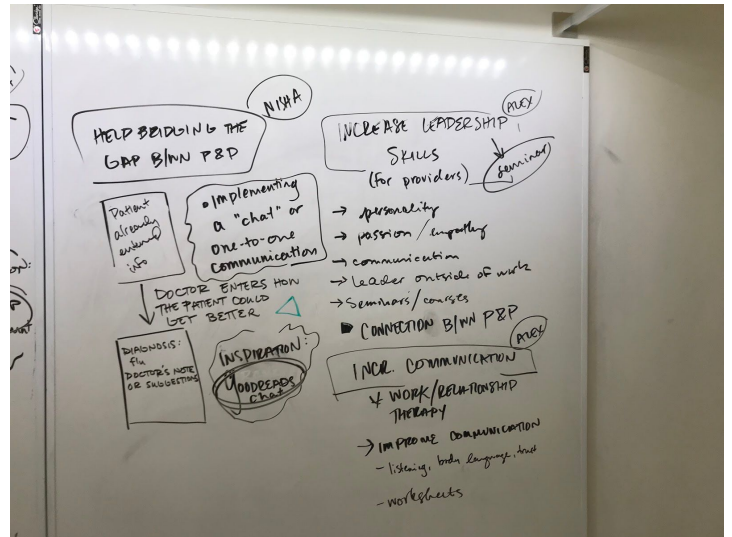 NISHA
HELP BRIDGING THE
GAP B/WN P&P
Patient
already
entered
info
• Implementing
a "chat" or
one-to-one
communication
DOCTOR ENTERS HOW
THE PATIENT COULD
GET BETTER
DIAGNOSIS:
flu
DOCTOR'S NOTE
OR SUGGESTIONS
INSPIRATION:
GOODREADS
chat
ALEX
INCREASE LEADERSHIP
SKILLS
(for providers)
seminar
→ personality
→ passion / empathy
→ communication
→ Leader outside of work
→ Seminars/courses
CONNECTION B/WN P&P
ALEX
INCR. COMMUNICATION
WORK/RELATIONSHIP
THERAPY
→ IMPROVE COMMUNICATION
- listening, body language, trust
- worksheets